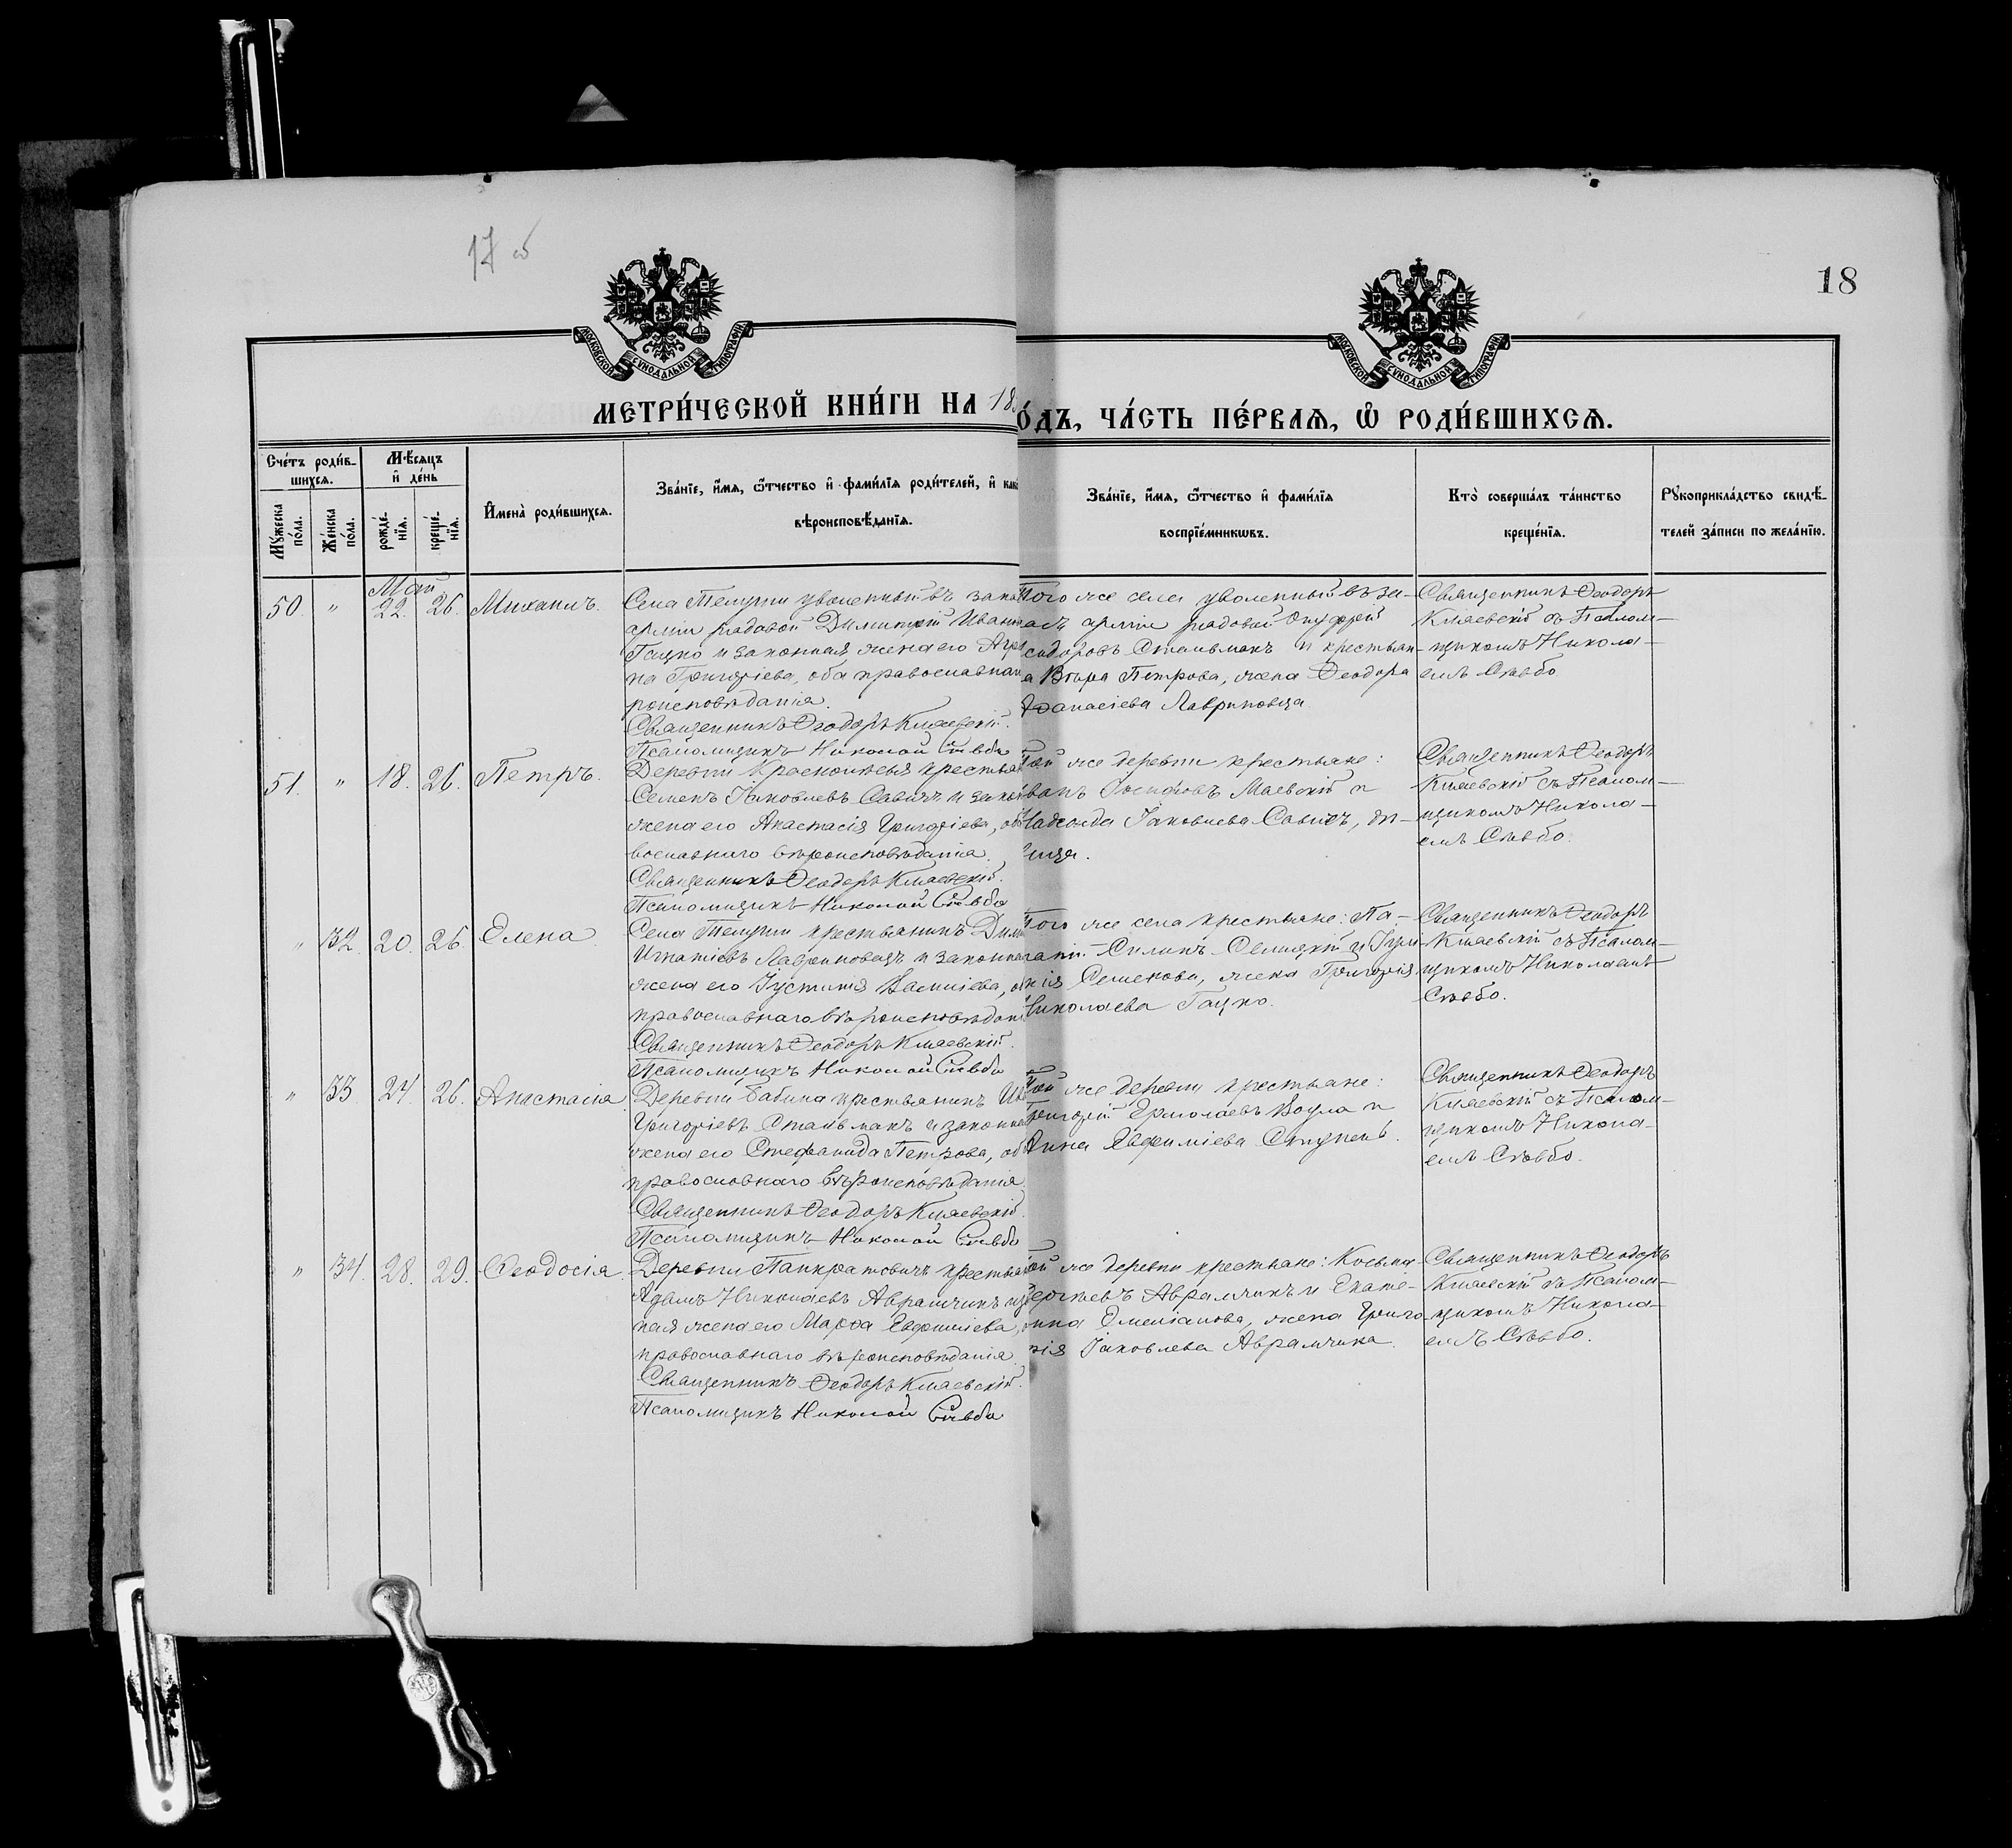 17 об
18
МОСКОВСКОЙ СѴНОДАЛЬНОЙ ТИПОГРАФІИ
МОСКОВСКОЙ СѴНОДАЛЬНОЙ ТИПОГРАФІИ
МЕТРИ́ЧЕСКОЙ КНИ́ГИ НА 18
О́ДЪ, ЧА́СТЬ ПЕ́РВАѦ, Ѽ РОДИ́ВШИХСѦ.
Сче́тъ роди́в-
шихсѧ.
Мꙋ́жеска по́ла.
Же́нска по́ла.
Мѣ́сѧцъ
и҆ де́нь
рожде́-
нїѧ.
креще́-
нїѧ.
И҆мена̀ роди́вшихсѧ.
Зва́нїе, и҆́мѧ, ѻ҆́тчество и҆ фами́лїѧ роди́телей, и҆ как
вѣроисповѣ́данїѧ.
Зва́нїе, и҆́мѧ, ѻ҆́тчество и҆ фами́лїѧ
воспрїе́мникѡвъ.
Кто̀ соверша́лъ та́инство
креще́нїѧ.
Рꙋкоприкла́дство свидѣ́-
телей за́писи по жела́нїю.
Май
50. " 22. 26. Михаилъ.
Села Телуши уволенный въ запа
арміи рядовой Димитрій Ивано
Гацко и законная жена его Агри
на Григоріева, оба православнаг
роисповѣданія.
Священникъ Ѳеодоръ Княжевскій.
Псаломщикъ Николай Сѣвбо
Того же села уволенный въ за-
асъ арміи рядовой Онуфрій
сидоровъ Стальмахъ и крестьян-
а Вѣра Петрова, жена Ѳеодора
Аѳанасіева Лавриновца
Священникъ Ѳеодоръ
Княжевскій съ Псалом-
щикомъ Никола-
емъ Сѣвбо
51. " 18. 26. Петръ.
Деревни крестья
Семенъ Іаковлевъ Савичъ и закон
жена его Анастасія Григоріева, об
вославнаго вѣроисповѣданія.
Священникъ Ѳеодоръ Княжевскій.
Псаломщикъ Николай Сѣвбо
Той же деревни крестьяне:
ванъ Іосифовъ Маевскій и
Надежда Іаковлева Савичъ, дѣ-
вица.
Священникъ Ѳеодоръ
Княжевскій съ Псалом-
щикомъ Никола-
емъ Сѣвбо.
" 32. 20. 26. Елена.
Села Телуши крестьянинъ Дим
Игнатіевъ Лавриновецъ и законна
жена его Іустинія Василіева, об
православнаго вѣроисповѣдан
Священникъ Ѳеодоръ Княжевскій.
Псаломщикъ Николай Сѣвбо
Того же села крестьяне:
Семенова, жена Григорія
Николаева Гацко.
Священникъ Ѳеодоръ
Княжевскій съ Псалом-
щикомъ Николаемъ
Сѣвбо.
" 33. 24. 26. Анастасія.
Деревни Бабина крестьянинъ Ив
Григоріевъ Стальмахъ и законна
жена его Стефанида Петрова, об
православнаго вѣроисповѣданія
Священникъ Ѳеодоръ Княжевскій.
Псаломщикъ Николай Сѣвбо
Той же деревни крестьяне:
Григорій Ермолаевъ и
Анна Евфиміева Ступень.
Священникъ Ѳеодоръ
Княжевскій съ Псалом-
щикомъ Никола-
емъ Сѣвбо.
" 34. 28. 29. Ѳеодосія.
Деревни Панкратовичъ крестья
Адамъ Николаевъ Аврамчикъ и за
ная жена его Марѳа Евфиміева,
православнаго вѣроисповѣданія
Священникъ Ѳеодоръ Княжевскій.
Псаломщикъ Николай Сѣвбо
Той же деревни крестьяне: Косьма
Сергѣевъ Аврамчикъ и Екате-
рина Емеліанова, жена Григо-
рія Іаковлева Аврамчика.
Священникъ Ѳеодоръ
Княжевскій съ Псалом-
щикомъ Никола-
емъ Сѣвбо.